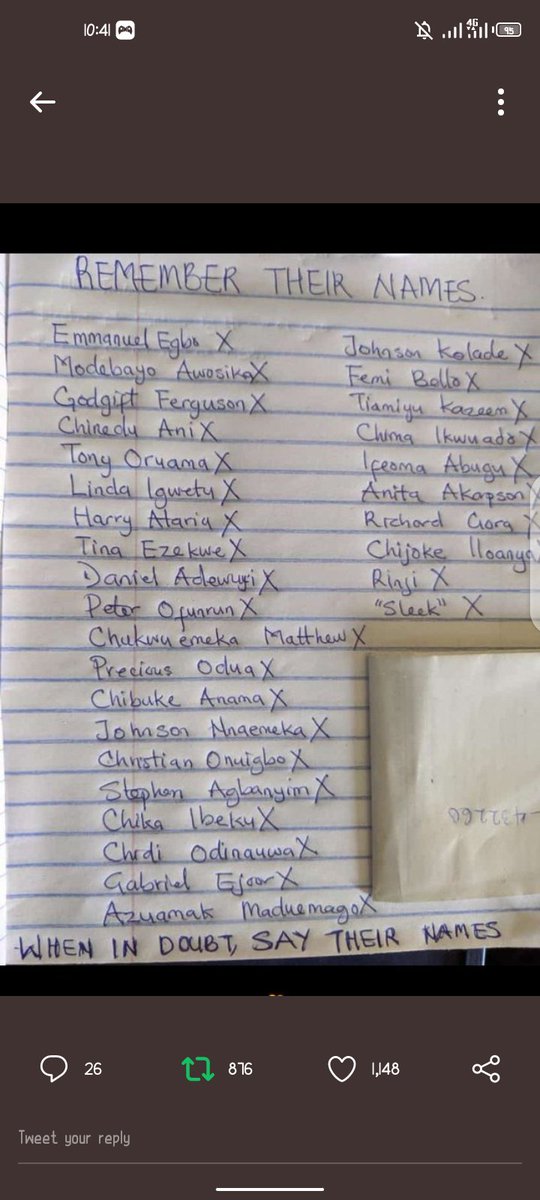 10:41
4G
95
REMEMBER THEIR NAMES.
Emmanuel Egbo X
Modebayo Awosika X
Godgift Ferguson X
Chinedu Ani X
Tony Oruama X
Linda Igwetu X
Harry Ataria X
Tina Ezekwe X
Daniel Adewuyi X
Peter Ofunrun X
Chukwuemeka Matthew X
Precious Odua X
Chibuke Anama X
Johnson Nnaemeka X
Christian Onuigbo X
Stephen Agbanyim X
Chika Ibeku X
Chidi Odinauwa X
Gabriel X
Azuamak Maduemago X
Johnson Kolade X
Femi Bello X
Tiamiyu Kazeem X
Chima Ikwuado X
Ifeoma Abugu X
Anita Akapson X
Richard Gora X
Chijoke Iloanya X
Rinji X
"Sleek" X
WHEN IN DOUBT, SAY THEIR NAMES
26
876
1,148
Tweet your reply